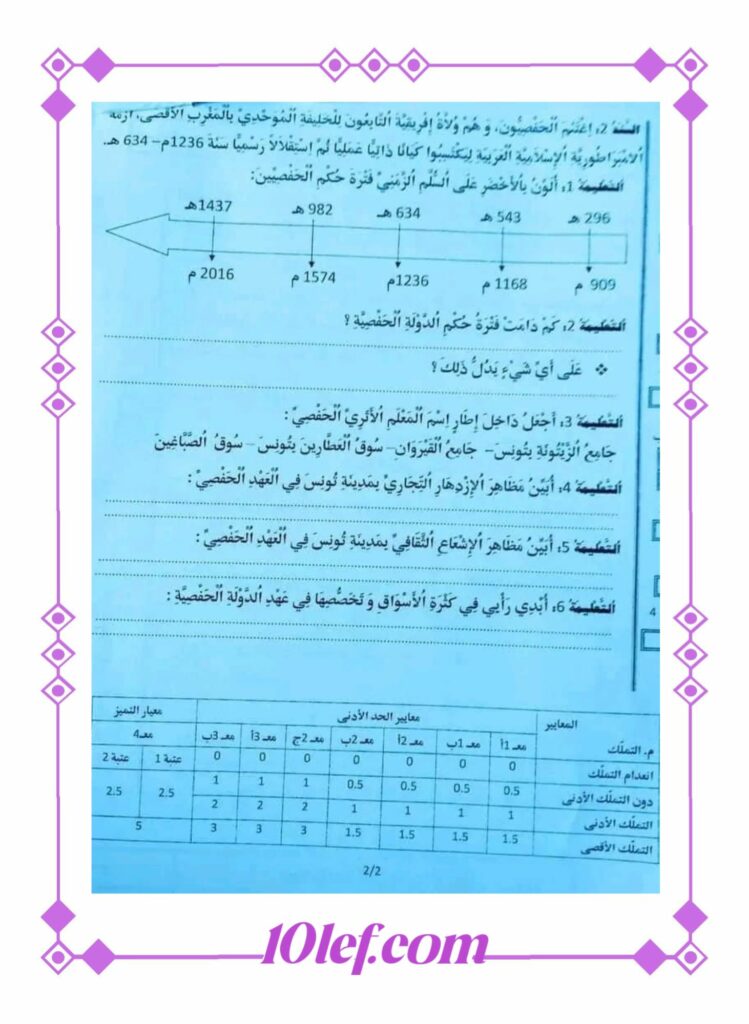 السّند 2: اِغْتَنَمَ الْحَفْصِيُّونَ، وَ هُمْ وُلَاةُ إِفْرِيقِيَّةَ التَّابِعُونَ لِلْخَلِيفَةِ الْمُوَحِّدِيِّ بِالْمَغْرِبِ الْأَقْصَى، أزمة
الْاِمْبَرَاطُورِيَّةِ الْإِسْلَامِيَّةِ الْغَرْبِيَّةِ لِيَكْتَسِبُوا كَيَانًا ذَاتِيًّا عَمَلِيًّا ثُمَّ اِسْتِقْلَالًا رَسْمِيًّا سَنَةَ 1236م– 634 هـ.
التّعليمة 1: أُلَوِّنُ بِالْأَخْضَرِ عَلَى السُّلَّمِ الزَّمَنِيِّ فَتْرَةَ حُكْمِ الْحَفْصِيِّينَ:
296 هـ 543 هـ 634 هـ 982 هـ 1437هـ
909 م 1168 م 1236م 1574 م 2016 م
التّعليمة 2: كَمْ دَامَتْ فَتْرَةُ حُكْمِ الدَّوْلَةِ الْحَفْصِيَّةِ ؟
❖ عَلَى أَيِّ شَيْءٍ يَدُلُّ ذَلِكَ ؟
التّعليمة 3: أَجْعَلُ دَاخِلَ إِطَارٍ اِسْمَ الْمَعْلَمِ الْأَثَرِيِّ الْحَفْصِيِّ :
جَامِعُ الزَّيْتُونَةِ بِتُونِسَ– جَامِعُ الْقَيْرَوَانِ– سُوقُ الْعَطَّارِينَ بِتُونِسَ– سُوقُ الصَّبَّاغِينَ
التّعليمة 4: أُبَيِّنُ مَظَاهِرَ الْاِزْدِهَارِ التِّجَارِيِّ بِمَدِينَةِ تُونِسَ فِي الْعَهْدِ الْحَفْصِيِّ :
التّعليمة 5: أُبَيِّنُ مَظَاهِرَ الْإِشْعَاعِ الثَّقَافِيِّ بِمَدِينَةِ تُونِسَ فِي الْعَهْدِ الْحَفْصِيِّ :
التّعليمة 6: أُبْدِي رَأْيِي فِي كَثْرَةِ الْأَسْوَاقِ وَ تَخَصُّصِهَا فِي عَهْدِ الدَّوْلَةِ الْحَفْصِيَّةِ :
4
المعايير معايير الحد الأدنى معيار التميز
م. التملّك معـ 1أ معـ 1ب معـ 2أ معـ 2ب معـ 2ج معـ 3أ معـ 3ب معـ4
عتبة 1 عتبة 2
انعدام التملّك 0 0 0 0 0 0 0
دون التملّك الأدنى 0.5 0.5 0.5 0.5 1 1 1 2.5 2.5
التملّك الأدنى 1 1 1 1 2 2 2
التملّك الأقصى 1.5 1.5 1.5 1.5 3 3 3 5
2/2
10lef.com